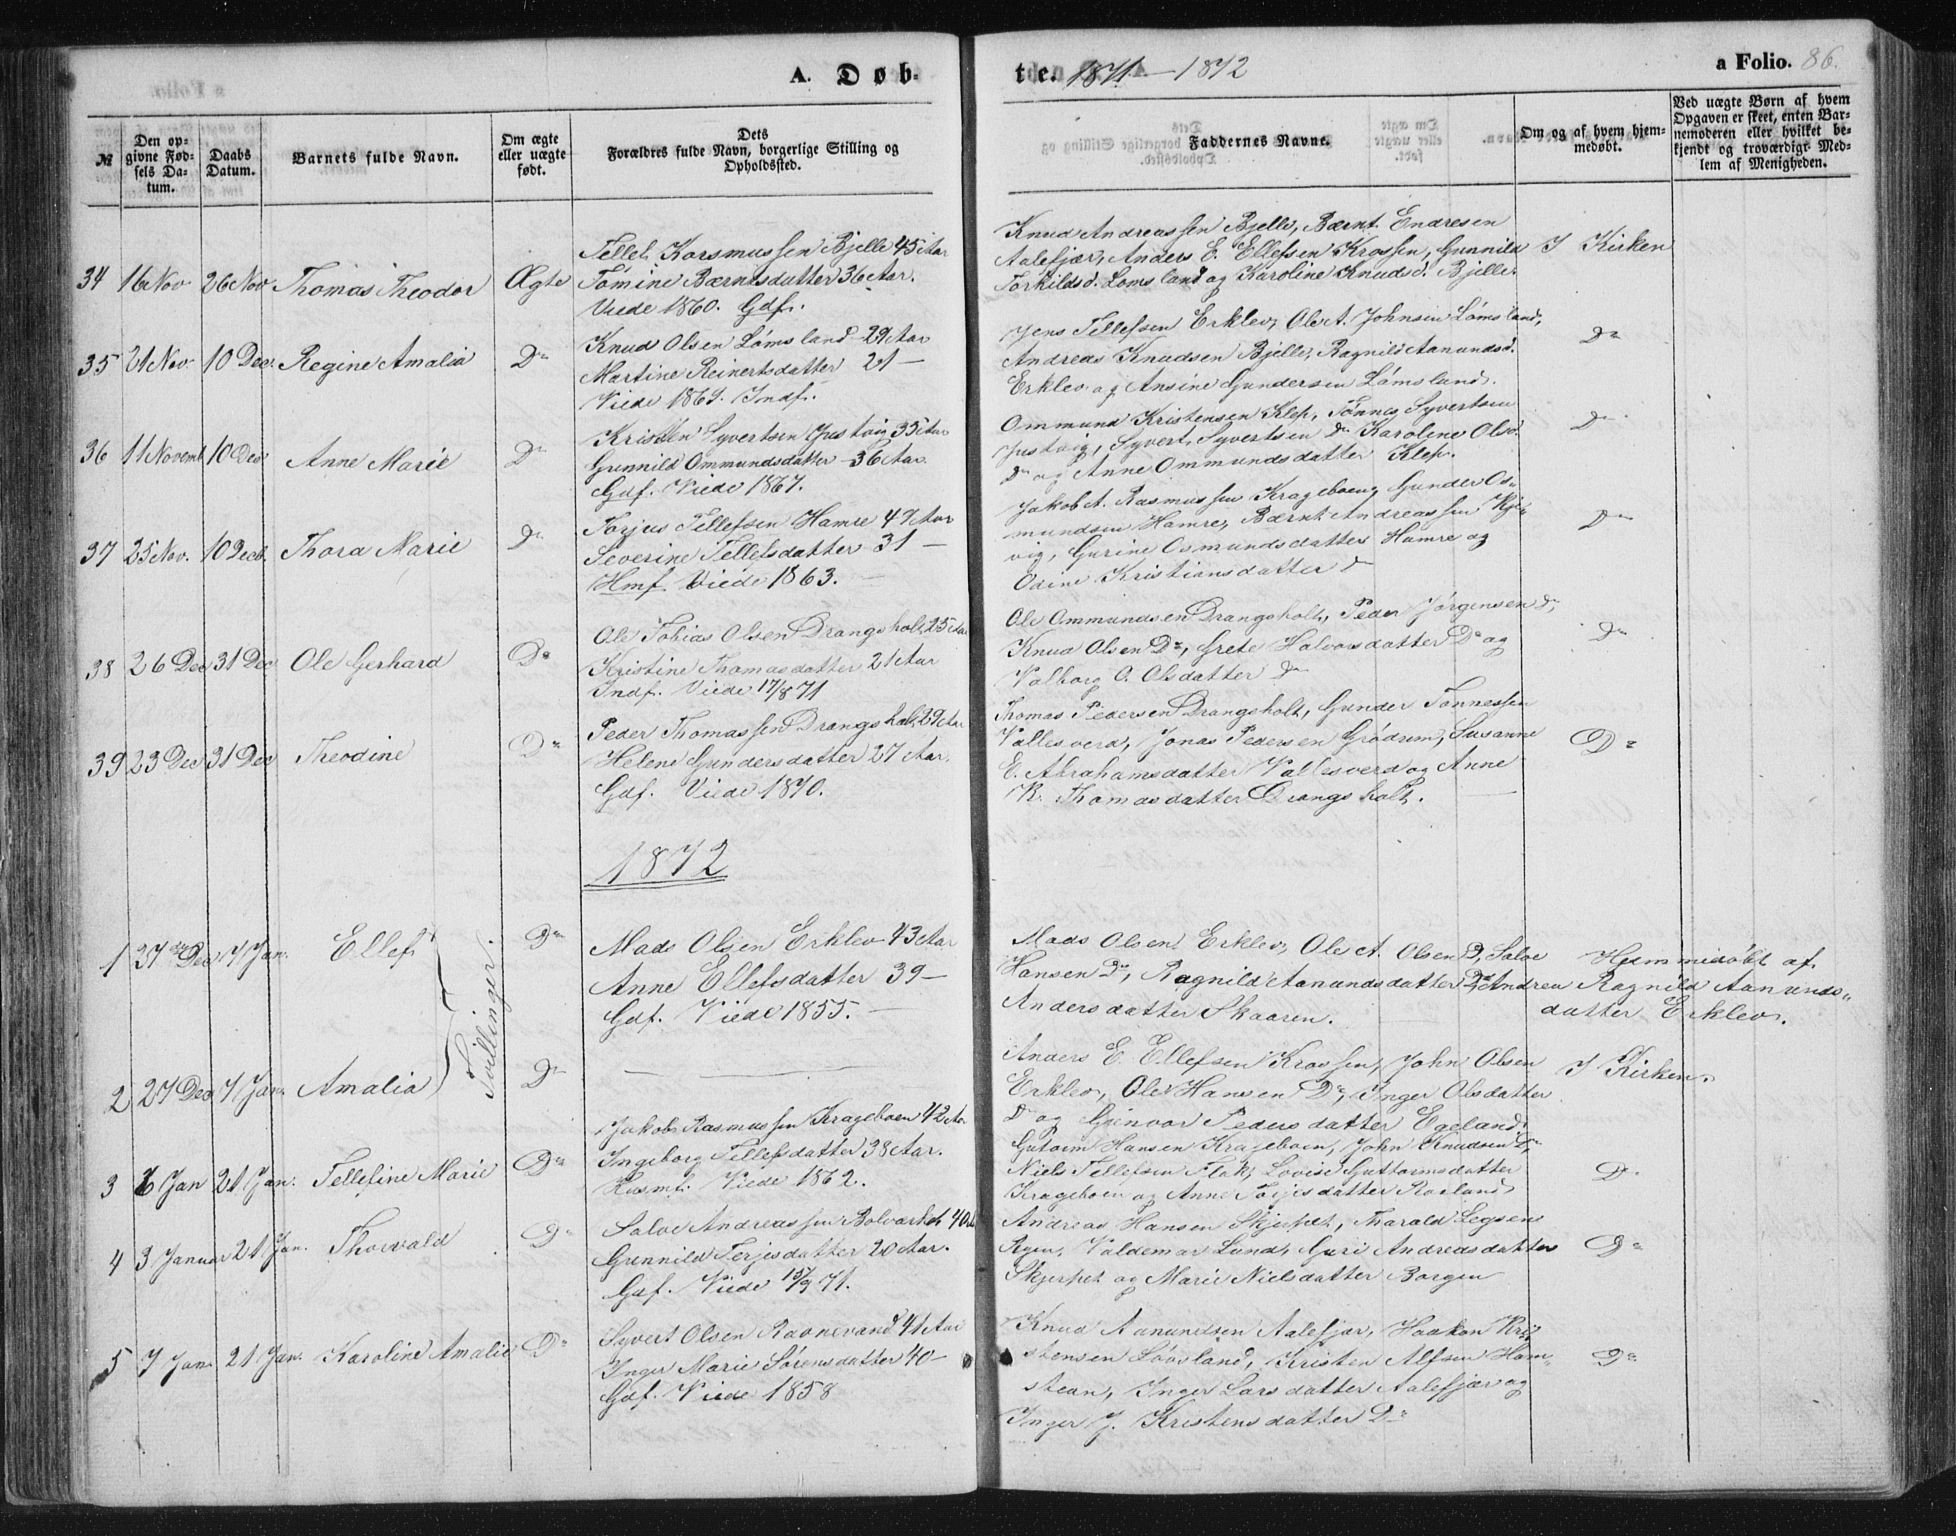 A. Døb-
te. 1871.-1872
a Folio. 86.
№
Den op-
givne Fød-
sels Da-
tum.
Daabs
Datum.
Barnets fulde Navn.
Om ægte
eller uægte
født.
Dets
Forældres fulde Navn, borgerlige Stilling og
Opholdssted.
Faddernes Navne.
Om og af hvem hjem-
medøbt.
Ved uægte Børn af hvem
Opgaven er skeet, enten Bar-
nemoderen eller hvilket be-
kjendt og troværdigt Med-
lem af Menigheden.
34 16 Nov 26 Nov Thomas Theodor Ægte
Tellef Korsmussen Bjelle 45 Aar
Tomine Bærntsdatter 36 Aar.
Viede 1860. Gdf.
Knud Andreassen Bjelle, Bærnt Endresen
Aalefjær, Anders E. Ellefsen Krossen, Gunnild
Torkildsd. Lomsland og Karoline Knudsd. Bjelle.
I Kirken
35 21 Nov. 10 Dec. Regine Amalia Do
Knud Olsen Lømsland 29 Aar
Martine Reinertsdatter 21 —
Viede 1869. Indf.
Jens Tellefsen Erklev, Ole A. Johnsen Lømsland,
Andreas Knudsen Bjelle, Ragnild Aanundsd.
Erklev og Ansine Gundersen Lømsland.
Do
36 11 Novemb. 10 Dec. Anne Marie Do
Kristen Syvertsen Justvig 35 Aar
Gunnild Ommundsdatter 36 Aar.
Gdf. Viede 1867.
Ommund Kristensen Klep, Tønnes Syvertsen
Justvig, Syvert Syvertsen Do Karoline Olsd.
Do og Anne Ommundsdatter Klep.
Do
37 25 Nov. 10 Decb. Thora Marie Do
Torjus Tellefsen Hamre 47 Aar
Severine Tellefsdatter 31 —
Hmf. Viede 1863. —
Jakob A. Rasmussen Krageboen, Gunder Os-
mundsen Hamre, Bærnt Andreassen Kje-
vig, Gurine Osmundsdatter Hamre og
Odine Kristiansdatter Do
Do
38 26 Dec 31 Dec Ole Gerhard Do
Ole Tobias Olsen Drangsholt 25 Aar
Kristine Thomasdatter 21 Aar
Indf. Viede 17/8 71
Ole Ommundsen Drangsholt, Peder Jørgensen Do,
Knud Olsen Do, Grete Halvorsdatter Do og
Valborg O. Olsdatter Do
Do
39 23 Dec 31 Dec Theodine Do
Peder Thomassen Drangsholt 29 Aar
Helene Gundersdatter 27 Aar.
Gdf. Viede 1870.
Thomas Pedersen Drangsholt, Gunder Tønnessen
Vallesverd, Jonas Pedersen Grødum, Susanne
E. Abrahamsdatter Vallesverd og Anne
K. Thomasdatter Drangsholt.
Do
1872
1 27 Dec 7 Jan. Ellef Do
Tvillinger.
Mads Olsen Erklev 43 Aar
Anne Ellefsdatter 39 —
Gdf. Viede 1855. —
Mads Olsen Erklev, Ole A. Olsen Do, Salve
Hansen Do, Ragnild Aanundsdatter Do Andrea
Andersdatter Skaaren.
Hjemmedøbt af
Ragnild Aanunds-
datter Erklev.
2 27 Dec 7 Jan. Amalia Do
Anders E. Ellefsen Krossen, John Olsen
Erklev, Ole Hansen Do, Inger Olsdatter
Do og Gunvor Pedersdatter Egeland.
I Kirken.
3 6 Jan 21 Jan. Tellefine Marie Do
Jakob Rasmussen Krageboen 42 Aar
Ingeborg Tellefsdatter 38 Aar.
Husmf. Viede 1862.
Gutorm Hansen Krageboen, John Knudsen Do,
Niels Tellefsen Flak, Lovise Guttormsdatter
Krageboen og Anne Torjesdatter Roeland
Do
4 3 Januar 21 Jan. Thorvald Do
Salve Andreassen Bolverket 40 Aar
Gunnild Terjesdatter 20 Aar.
Gdf. Viede 15/9 71.
Andreas Hansen Skjerpet, Tharald Legsens
Ryen, Valdemar Lund, Guri Andreasdatter
Skjerpet og Marie Nielsdatter Borgen
Do
5 7 Jan 21 Jan. Karoline Amalie Do
Syvert Olsen Ravnevand 41 Aar
Inger Marie Sørensdatter 40 —
Gdf. Viede 1858
Knud Aanundsen Aalefjær, Haakon Kri-
stensen Løvsland, Kristen Alfsen Ham-
stean, Inger Larsdatter Aalefjær og
Inger J. Kristensdatter Do
Do